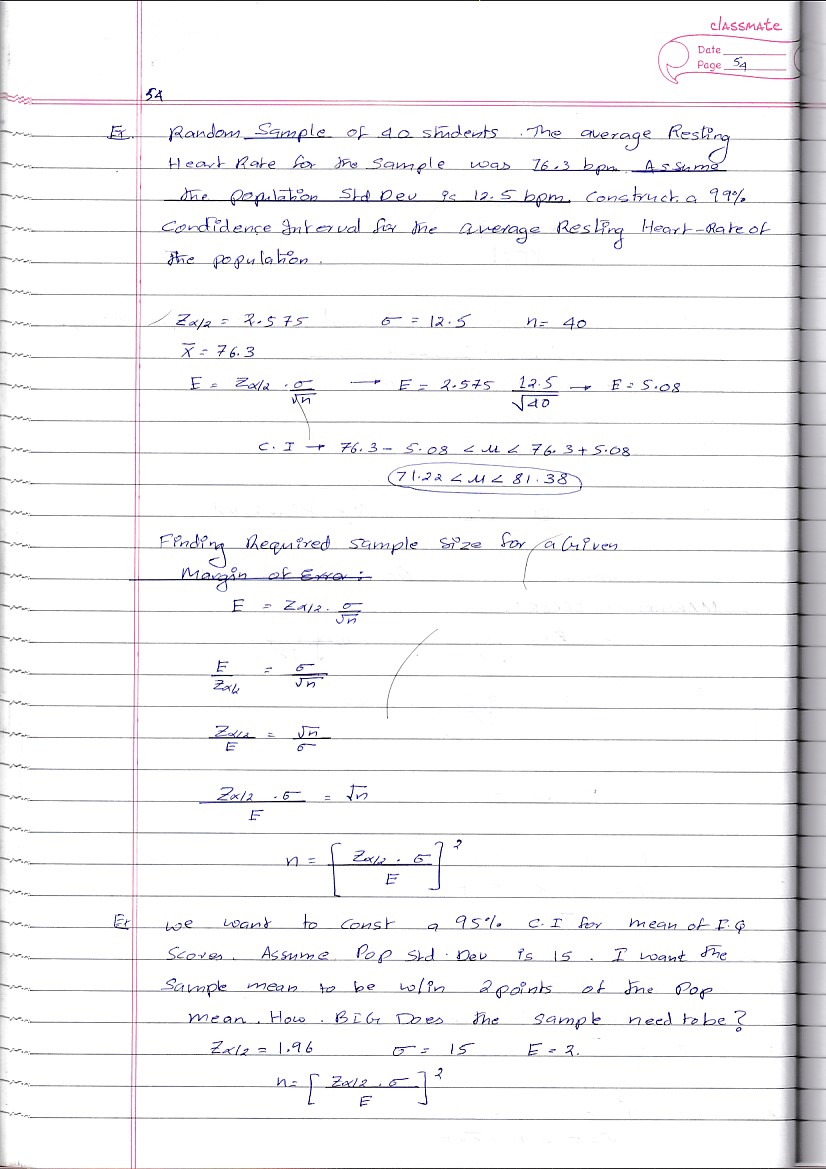 classmate
Date
Page 54
54
Ex. Random Sample of 40 students. The average Resting
Heart Rate for the Sample was 76.3 bpm. Assume
the population Std Dev is 12.5 bpm. Construct a 99%
Confidence Interval for the average Resting Heart-Rate of
the population.
Zα/2 = 2.575 σ = 12.5 n = 40
X̄ = 76.3
E = Zα/2 · σ/√n → E = 2.575 12.5/√40 → E = 5.08
C.I → 76.3 - 5.08 < μ < 76.3 + 5.08
71.22 < μ < 81.38
Finding Required Sample Size for a Given
Margin of Error:
E = Zα/2 · σ/√n
E/Zα/2 = σ/√n
Zα/2/E = √n/σ
Zα/2 · σ/E = √n
n = [Zα/2 · σ/E]²
Ex we want to const a 95% C.I for mean of I.Q
Scores. Assume Pop Std. Dev is 15. I want the
Sample mean to be w/in 2 points of the Pop
mean. How. BIG Does the sample need to be?
Zα/2 = 1.96 σ = 15 E = 2.
n = [Zα/2 · σ/E]²